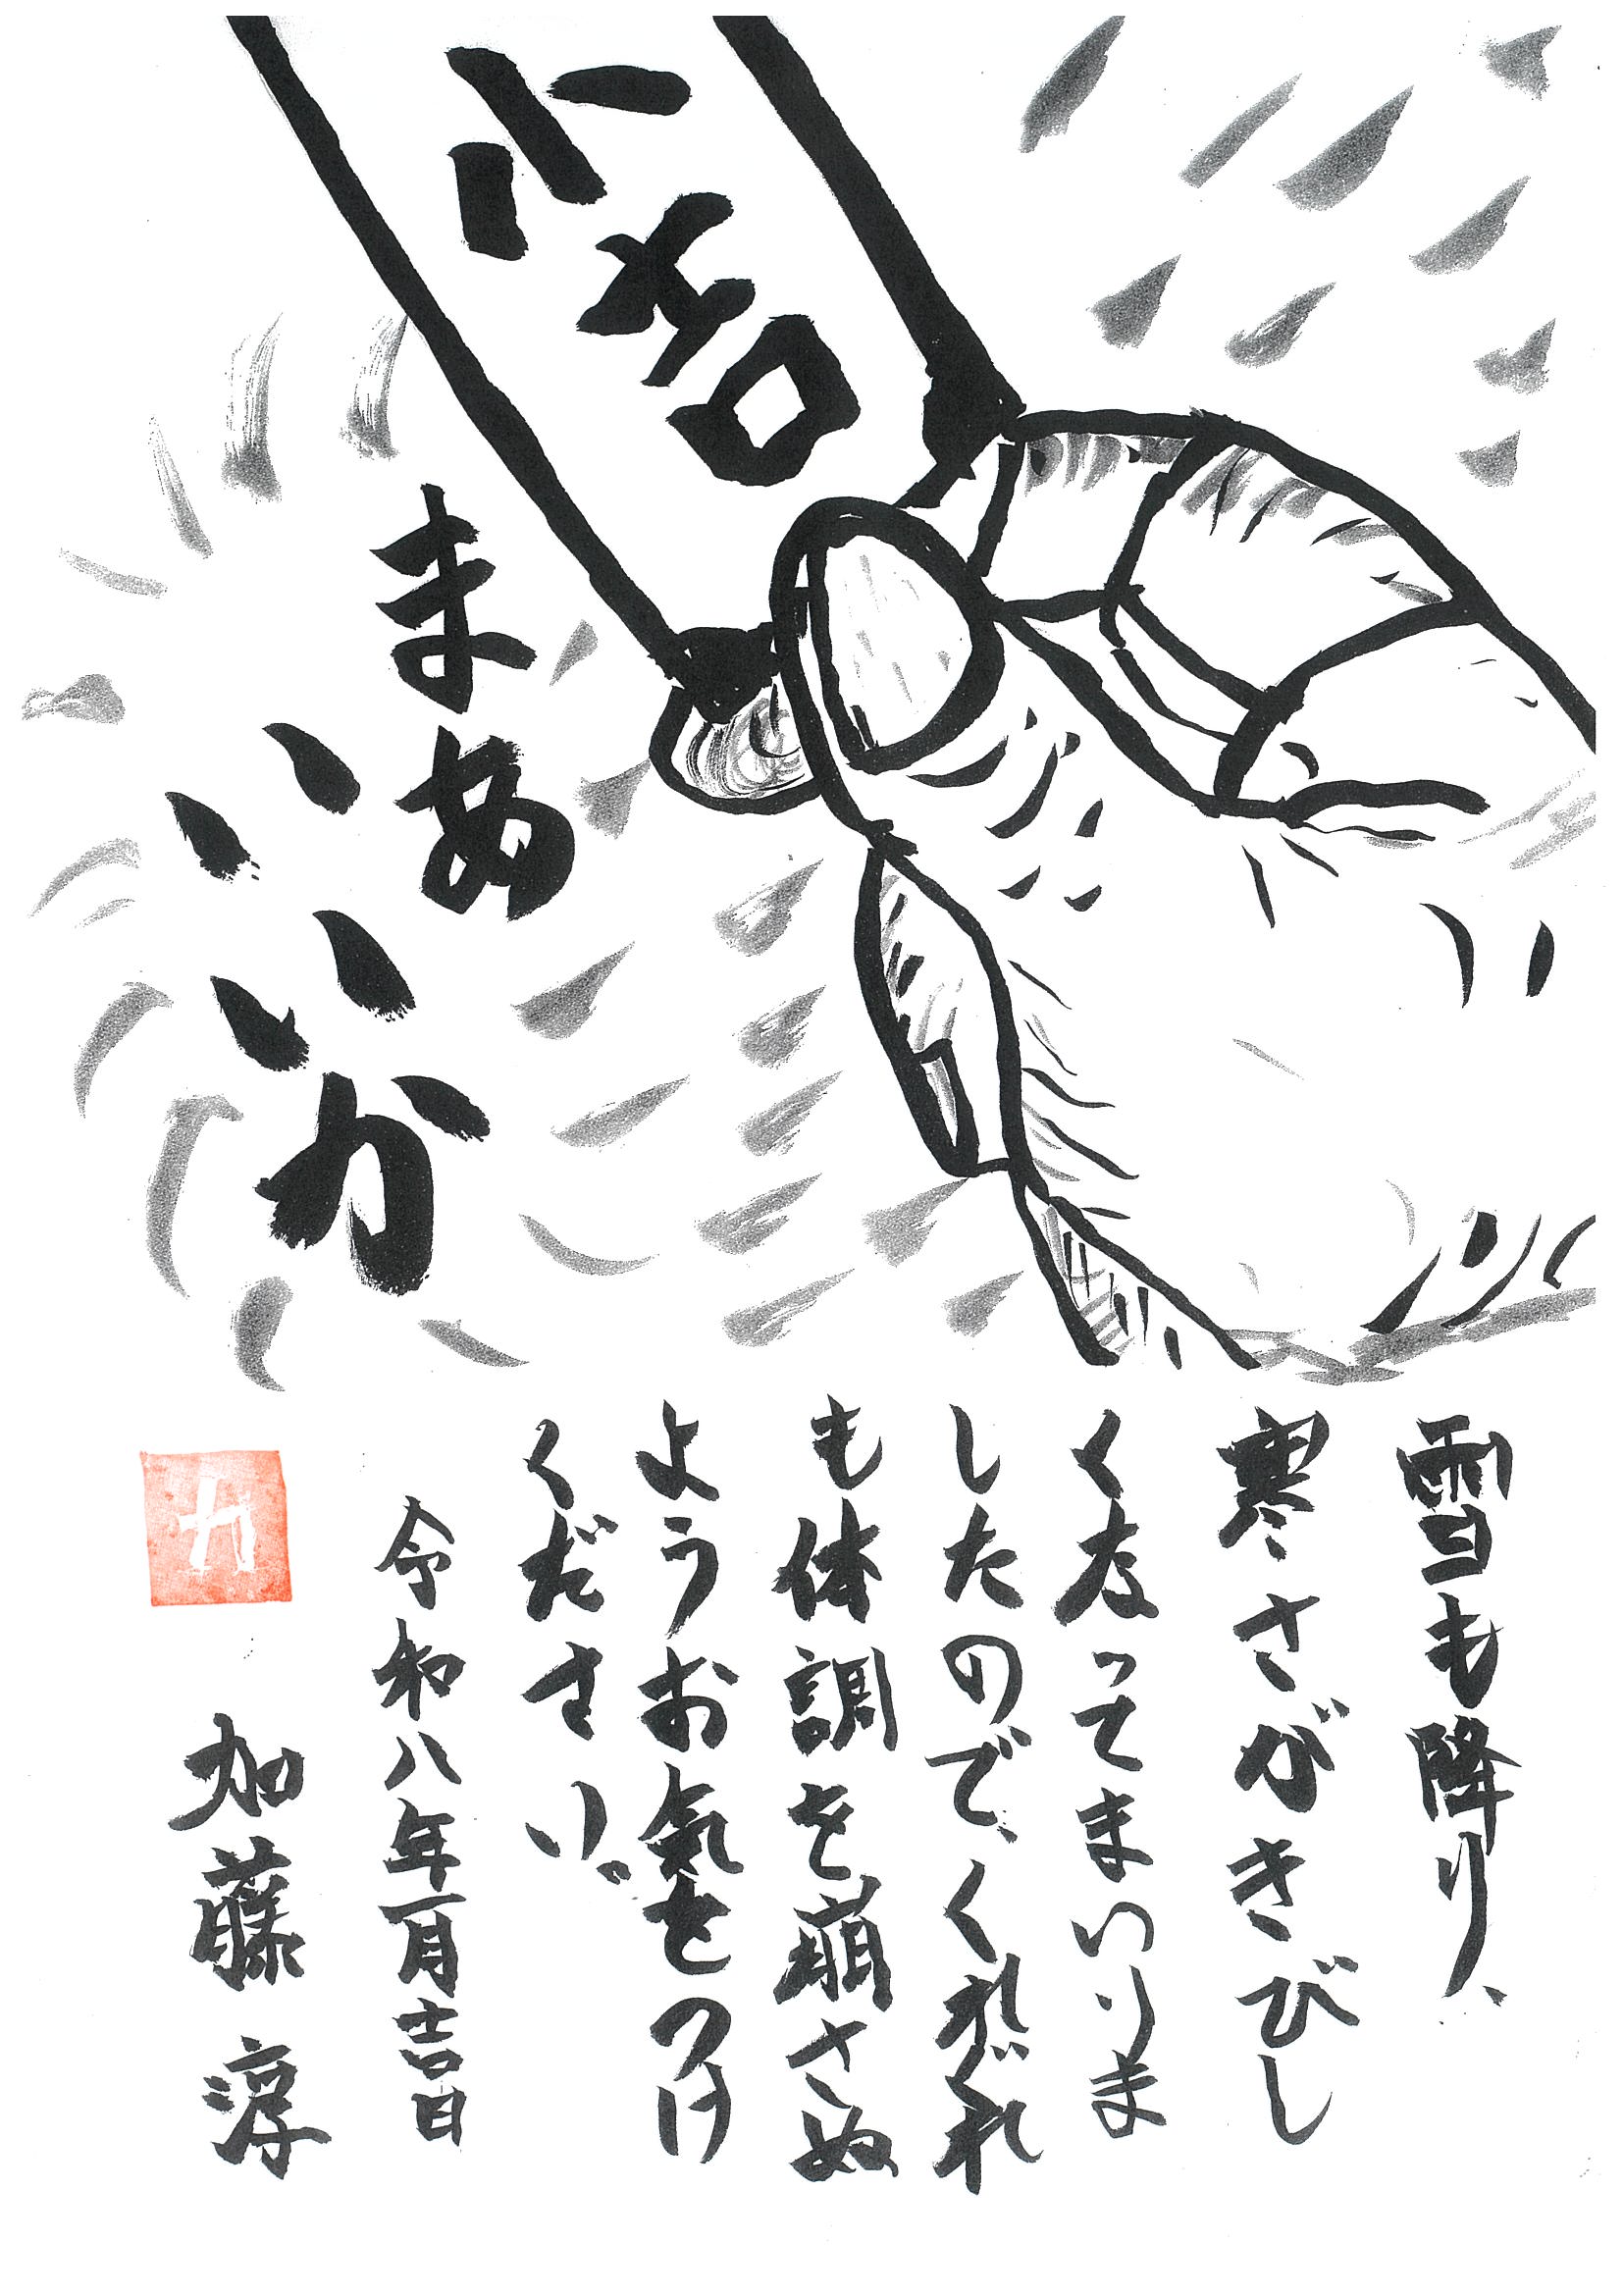 小吉
まあ
いいか
雪も降り、
寒さがきびし
くなってまいりま
したので、くれぐれ
も体調を崩さぬ
ようお氣をつけ
ください。
令和八年一月吉日
加藤淳
カ